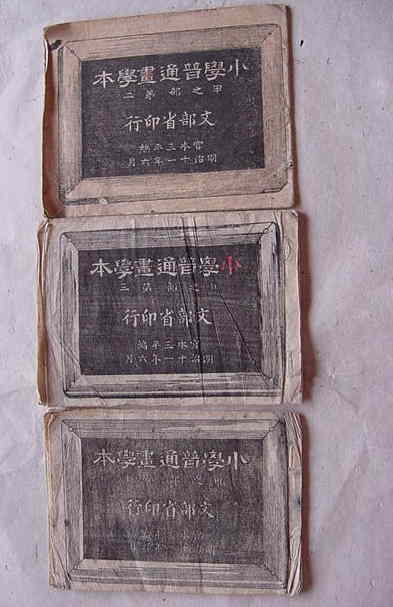 小學普通畫學本
甲之部第二
文部省印行
宮本三平編
明治十一年六月
小學普通畫學本
甲之部第三
文部省印行
宮本三平編
明治十一年六月
小學普通畫學本
文部省印行